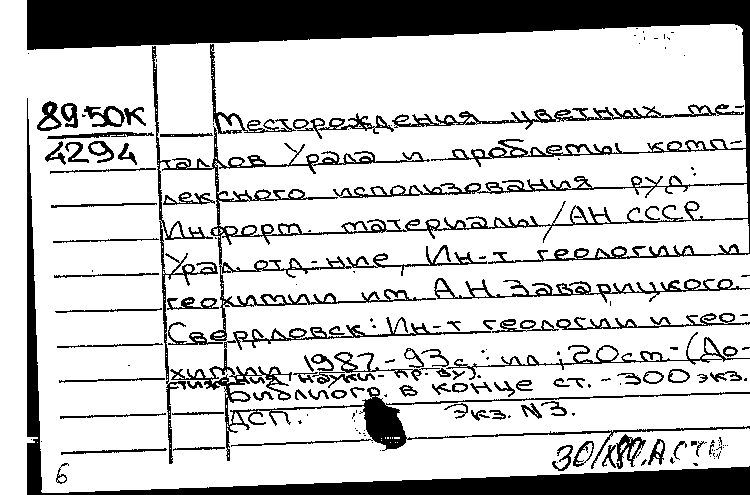 89-50К
4294
Месторождения цветных ме-
таллов Урала и проблемы комп-
лексного использования руд:
Информ. материалы/АН СССР.
Урал. отд-ние, Ин-т геологии и
геохимии им. А.Н.Заварицкого.-
Свердловск: Ин-т геологии и гео-
химии, 1987.-93с.: ил.; 20см-(До-
стижения науки- пр-ву).
Библиогр. в конце ст. - 300 экз.
ДСП. Экз. N3.
6